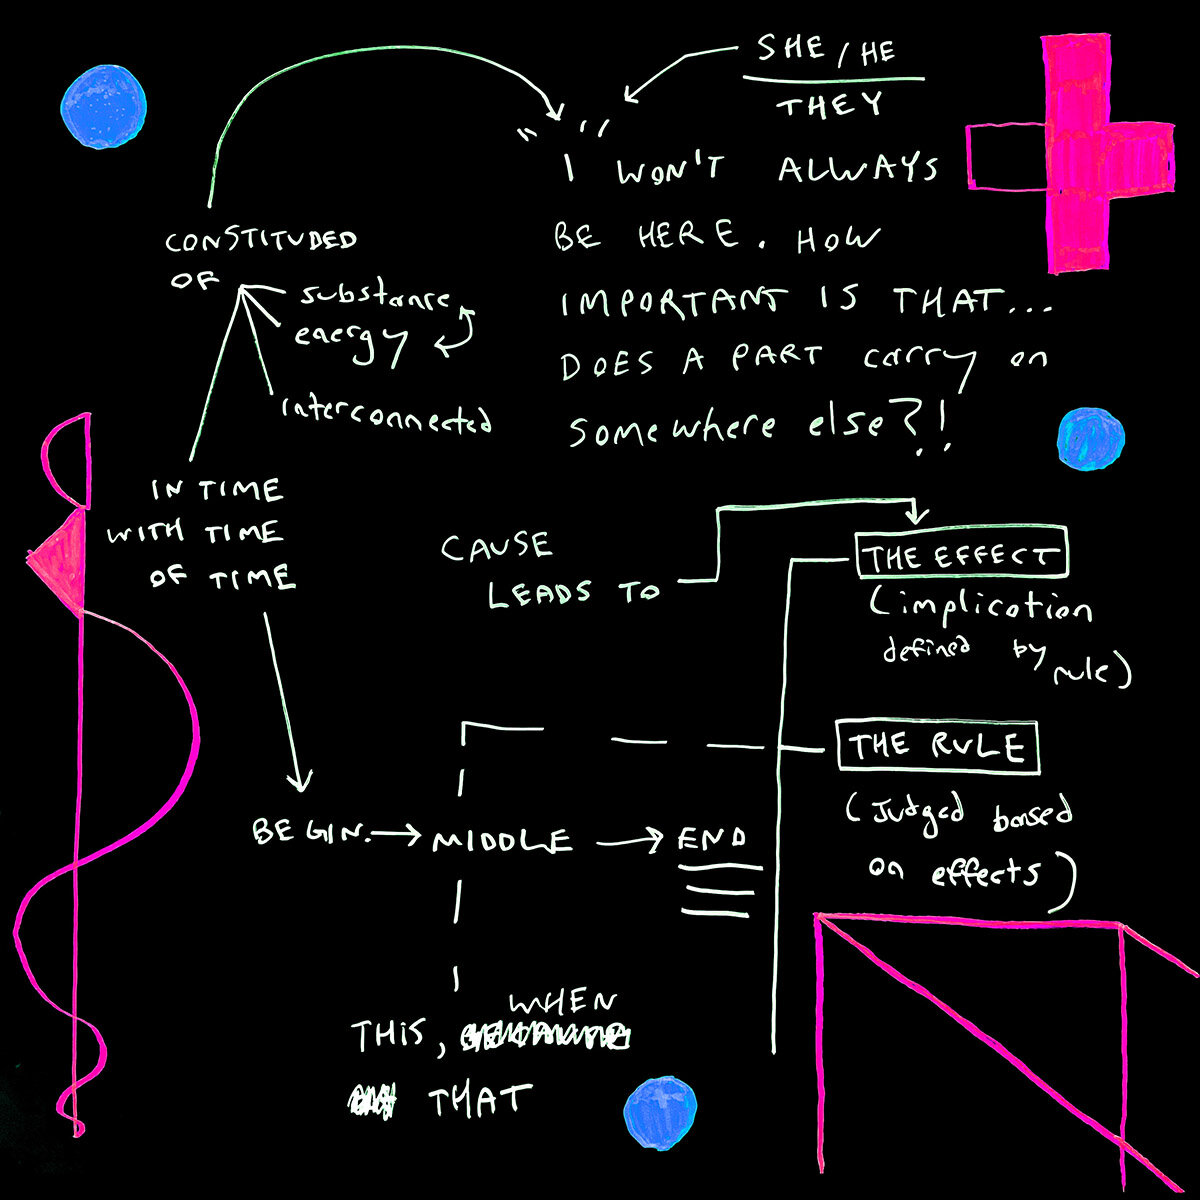 SHE/HE
THEY
"I" WON'T ALWAYS
BE HERE. HOW
IMPORTANT IS THAT...
DOES A PART carry on
somewhere else?!
CONSTITUDED
OF
substance
energy
interconnected
IN TIME
WITH TIME
OF TIME
CAUSE
LEADS TO
THE EFFECT
(implication
defined by
rule)
THE RULE
(Judged based
on effects)
BEGIN. → MIDDLE → END
WHEN
THIS,
THAT